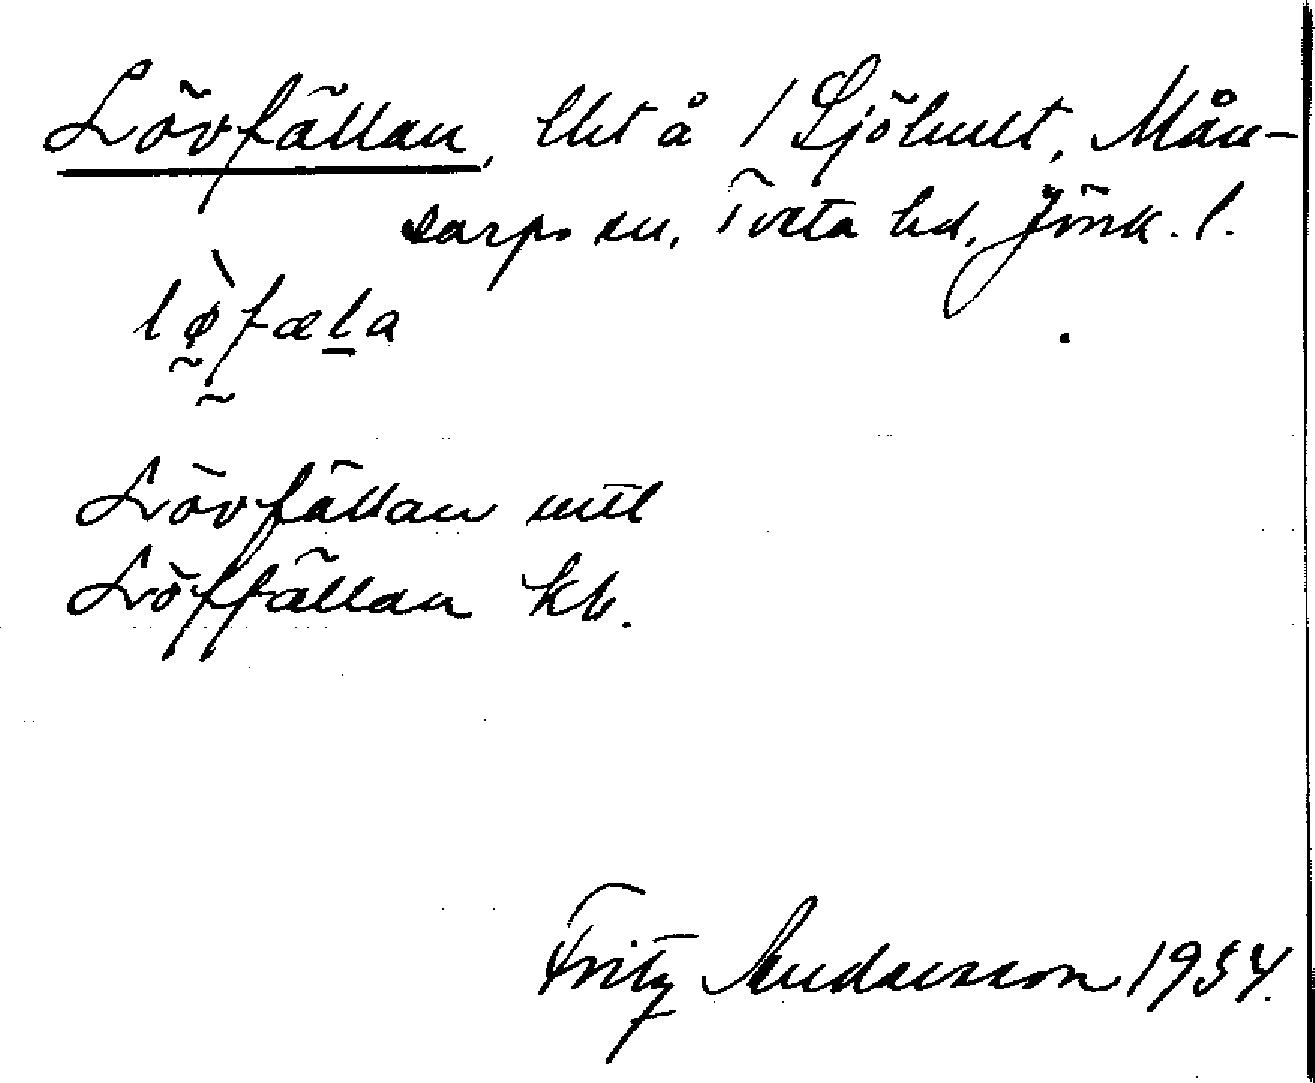 Lövfällan, lht å 1 Sjöhult, Mån-
sarps sn, Tveta hd, Jönk. l.
lø̀fæla
Lövfällan mtl
Löffällan kb.
Fritz Andersson 1934.